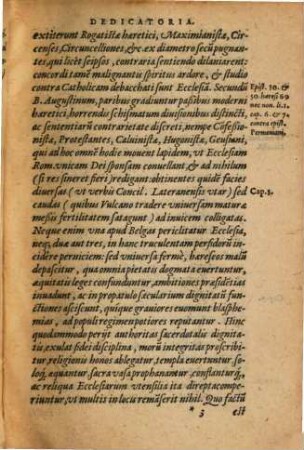 DEDICATORIA.
extiterunt Rogatistæ hæretici, Maximianistæ, Circenses, Circuncelliones, &c. ex diametro secū pugnantes,
qui licèt seipsos, contraria sentiendo dilaniarent:
concordi tamē malignantū spiritus ardore, & studio
contra Catholicam debacchati sunt Ecclesiā. Secundū
B. Augustinum, paribus gradiuntur passibus moderni
hæretici, horrendis schismatum diuisionibus distincti,
ac sententiarū contrarietate discreti, nempe Cōfessionistæ,
Protestantes, Caluinistæ, Hugonistæ, Geusiani,
qui ad hoc omnē hodie mouent lapidem, vt Ecclesiam
Rom.vnicam Dei sponsam conuellant, & ad nihilum
(si res sineret fieri) redigant obtinentes quidē facies
diuersas (vt verbis Concil. Lateranensis vtar) sed
caudas (quibus Vulcano tradere vniuersam maturæ
messis fertilitatem satagunt) ad inuicem colligatas.
Neque enim vna apud Belgas periclitatur Ecclesia,
neq; duæ aut tres, in hanc truculentam perfiderū incidere
perniciem: sed vniuersa fermè, hæreseos malū
depascitur, quo omnia pietatis dogmata euertuntur,
æquitatis leges confunduntur, ambitiones præsidētias
inuadunt, ac in propatulo sæcularium dignitatū functiones
asciscunt, quique grauiores euomunt blasphemias,
ad populi regimen potiores reputantur. Hinc
quodammodo perijt authoritas sacerdotalis dignitatis,
exulat fidei disciplina, morū integritas proscribitur,
religionis honos ablegatur, templa euertuntur, soloq;
æquantur, sacra vasa prophanantur, conflanturq́;
ac reliqua Ecclesiarum vtensilia ita direpta comperiuntur,
vt multis in locu remāserit nihil. Quo factū
* 3 est
Epist. 50. &
lib. hæresū 60
nec non li. 2.
cap. 6. & 7.
contra epist.
Parmeniani.
Cap. 3.